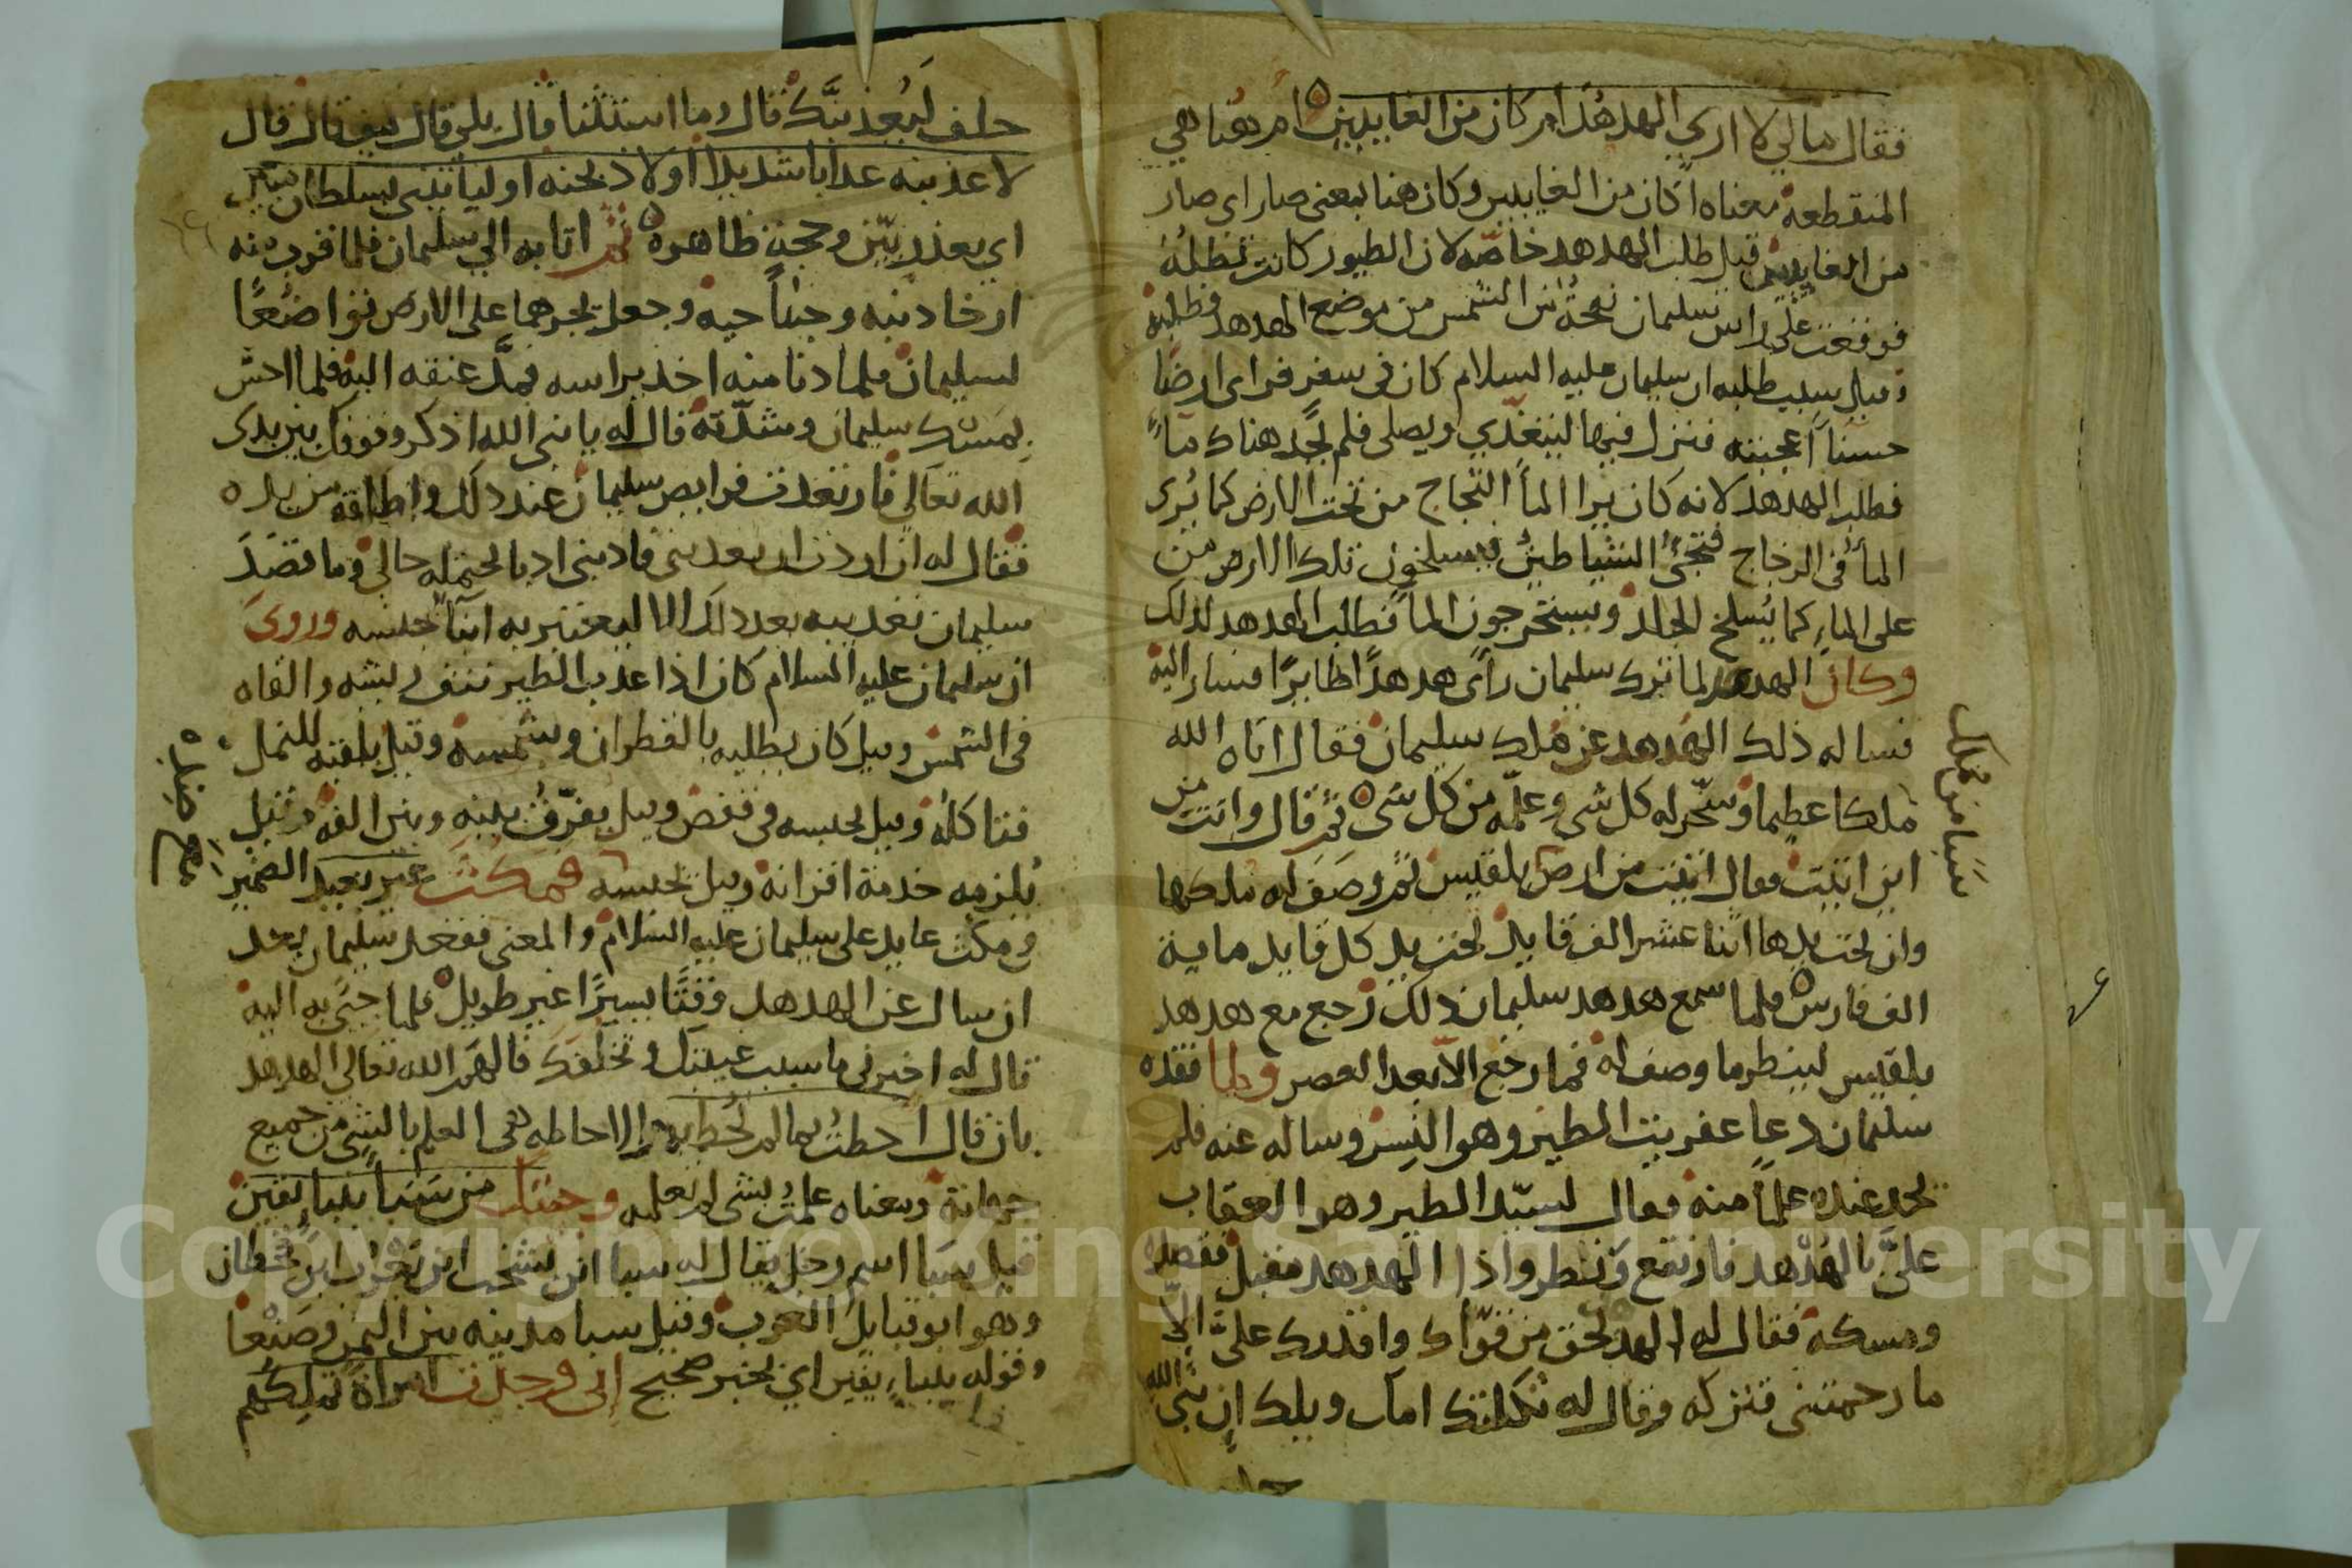 فقال مالي لا اري الهدهد ام كان من الغايبين ام هنا هي
المنقطعة معناه اكان من الغايبين وكان هنا بمعنى صار اي صار
من الغايبين قيل طلب الهدهد خاصه لان الطيور كانت تظله
فوقعت على راس سليمان نفحة من الشمس من موضع الهدهد فطلبه
وقيل سبب طلبه ان سليمان عليه السلام كان في سفر فراى ارضا
حسنا اعجبته فنزل فيها ليتغدي ويصلى فلم يجد هناك مآء
فطلب الهدهد لانه كان يرا المأ الثجاج من تحت الارض كما يُرى
المأ في الزجاج فتجئ الشياطين فيسلخون تلك الارض من
على الماء كما يُسلخ الجلد ويستخرجون الماء فطلب الهدهد لذلك
وكان الهدهد لما نزل سليمان رأى هدهدًا طايرًا فسار اليه
فساله ذلك الهدهد عن ملك سليمان فقال اتاه الله
ملكا عظيما وسخّر له كل شي وعلّمه من كل شى ثم قال وانت من
اين اتيت فقال اتيت من ارض بلقيس ثم وصف له ملكها
وان تحت يدها اثنا عشر الف قايد تحت يد كل قايد ماية
الف فارس فلما سمع هدهد سليمان ذلك رجع مع هدهد
بلقيس لينظر ما وصف له فما رجع الا بعد العصر ولما فقده
سليمان دعا عفريت الطير وهو النسر وساله عنه فلم
يجد عنده علمًا منه فقال لسيّد الطير وهو العقاب
علىَّ بالهُدهد فارتفع ونظر واذا الهدهد مقبل فقصده
ومسكه فقال له الهدهد بحق من قوّاك واقدرك علىّ الاّ
ما رحمتنى فتركه وقال له ثكلتك امك ويلك ان نبيّ الله
حلف
سبا من تملك
حلف ليُعذبنّك قال وما استثنا قال بلى قال كيف قال قال
لاعذبنه عذابا شديدا او لاذبحنه او لياتيني بسلطان مبين
اي بعذر بيّن وحجة ظاهرة ثم اتا به الي سليمان فلما قرب منه
ارخا ذنبه وجناحيه وجعل يجرهما على الارض تواضعًا
لسليمان فلما دنا منه اخذ براسه فمدَّ عنقه اليه فلما احسّ
بمسك سليمان وشدّته قال له يا نبى الله اذكر وقوفك بين يدى
الله تعالى فارتعدت فرايص سليمان عند ذلك واطلقه من يده
فقال له ان اردت ان تعذبنى فادبنى ادبا يحتمله حالى وما قصَدَ
سليمان تعذيبه بعد ذلك الا ليعتبر به ابنآ جنسه وروىَ
ان سليمان عليه السلام كان اذا عذب الطير نتف ريشه والقاه
في الشمس وقيل كان يطليه بالقطران ويشمسه وقيل يلقيه للنمل
فتاكله وقيل يحبسه في قفص وقيل يفرّق بينه وبين الفه وقيل
يُلزمه خدمة اقرانه وقيل يحبسه فمكثَ غير بعيد الضمير
في مكث عايد على سليمان عليه السلام والمعنى ففقد سليمان بعد
ان سال عن الهدهد وقتًا يسيرًا غير طويل فلما جئ به اليه
قال له اخبرنى ما سبب غيبتك وتخلفك فالهمه الله تعالى الهدهد
بان قال احطتُ بما لم تُحط به والاحاطه هى العلم بالشي من جميع
جهاته ومعناه علمتُ بشى لم تعلمه وجئتك من سبَا بنبأ يقين
قيل سبا اسم رجل يقال له سبا ابن يشخب ابن يَعرُب ابن قحطان
وهو ابو قبايل العرب وقيل سبا مدينه من اليمن وصنعا
وقوله بنباءٍ يقين اي بخبر صحيح إنى وجدت امراة تملكهم